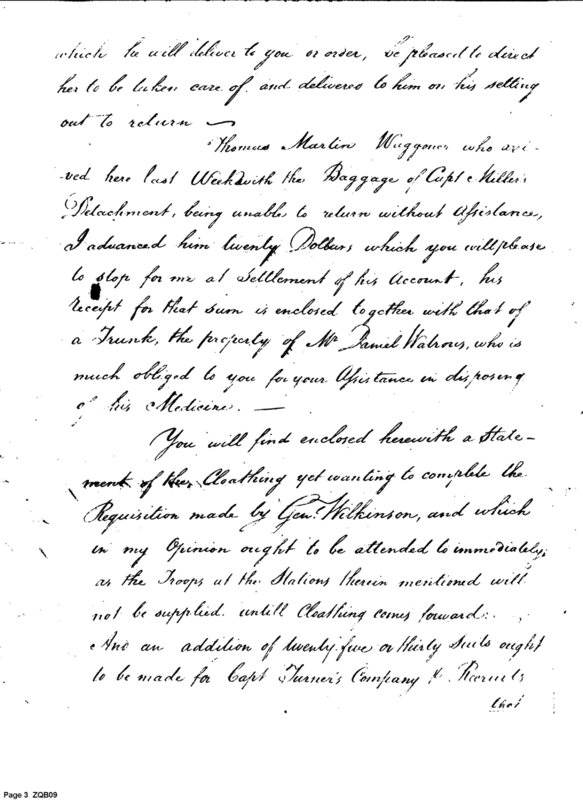 which he will deliver to you or order, be pleased to direct
her to be taken care of and delivered to him on his setting
out to return
Thomas Martin Waggoner who arri-
-ved here last Week with the Baggage of Capt Miller's
Detachment, being unable to return without Assistance,
I advanced him twenty Dollars which you will please
to stop for me at Settlement of his Account, his
receipt for that sum is enclosed together with that of
a Trunk, the property of Mr Daniel Watrous, who is
much obliged to you for your Assistance in disposing
of his Medicine. —
You will find enclosed herewith a State-
ment of the Cloathing yet wanting to complete the
Requisition made by Genl. Wilkinson, and which
in my Opinion ought to be attended to immediately,
as the Troops at the Stations therein mentioned will
not be supplied untill Cloathing comes forward.
And an addition of twenty five or thirty Suits ought
to be made for Capt Turner's Company & Recruits
that
Page 3 ZQB09